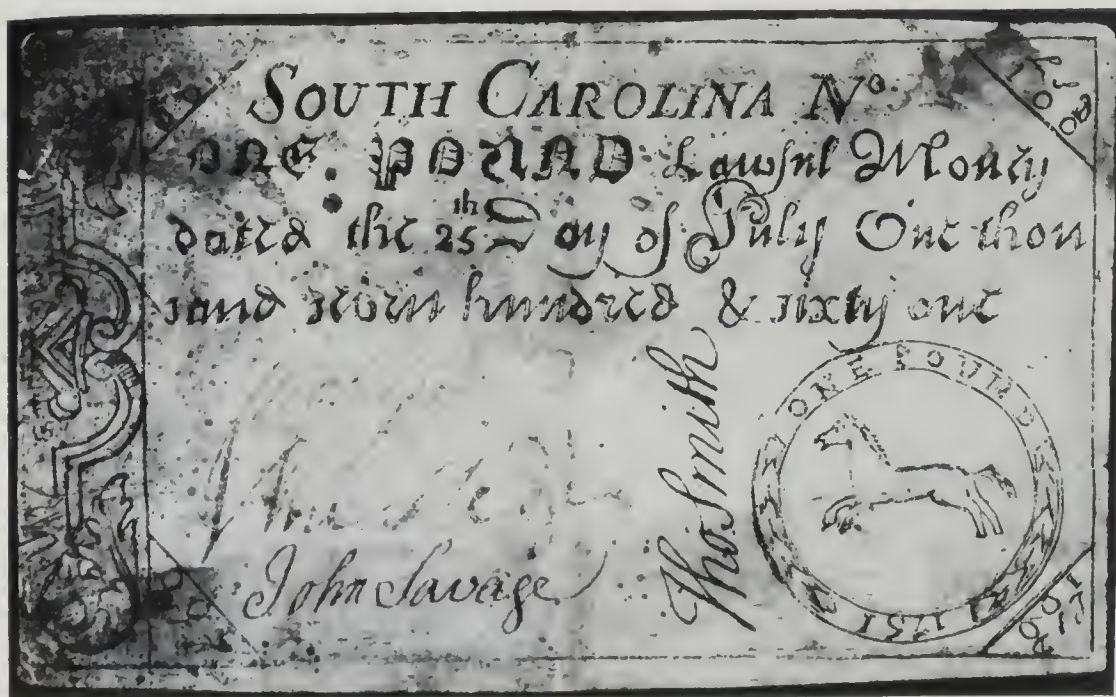 SOUTH CAROLINA No.
ONE POUND Lawful Money
dated the 25th Day of July One thou
sand seven hundred & sixty one
John Savage
Tho Smith
ONE POUND
1751